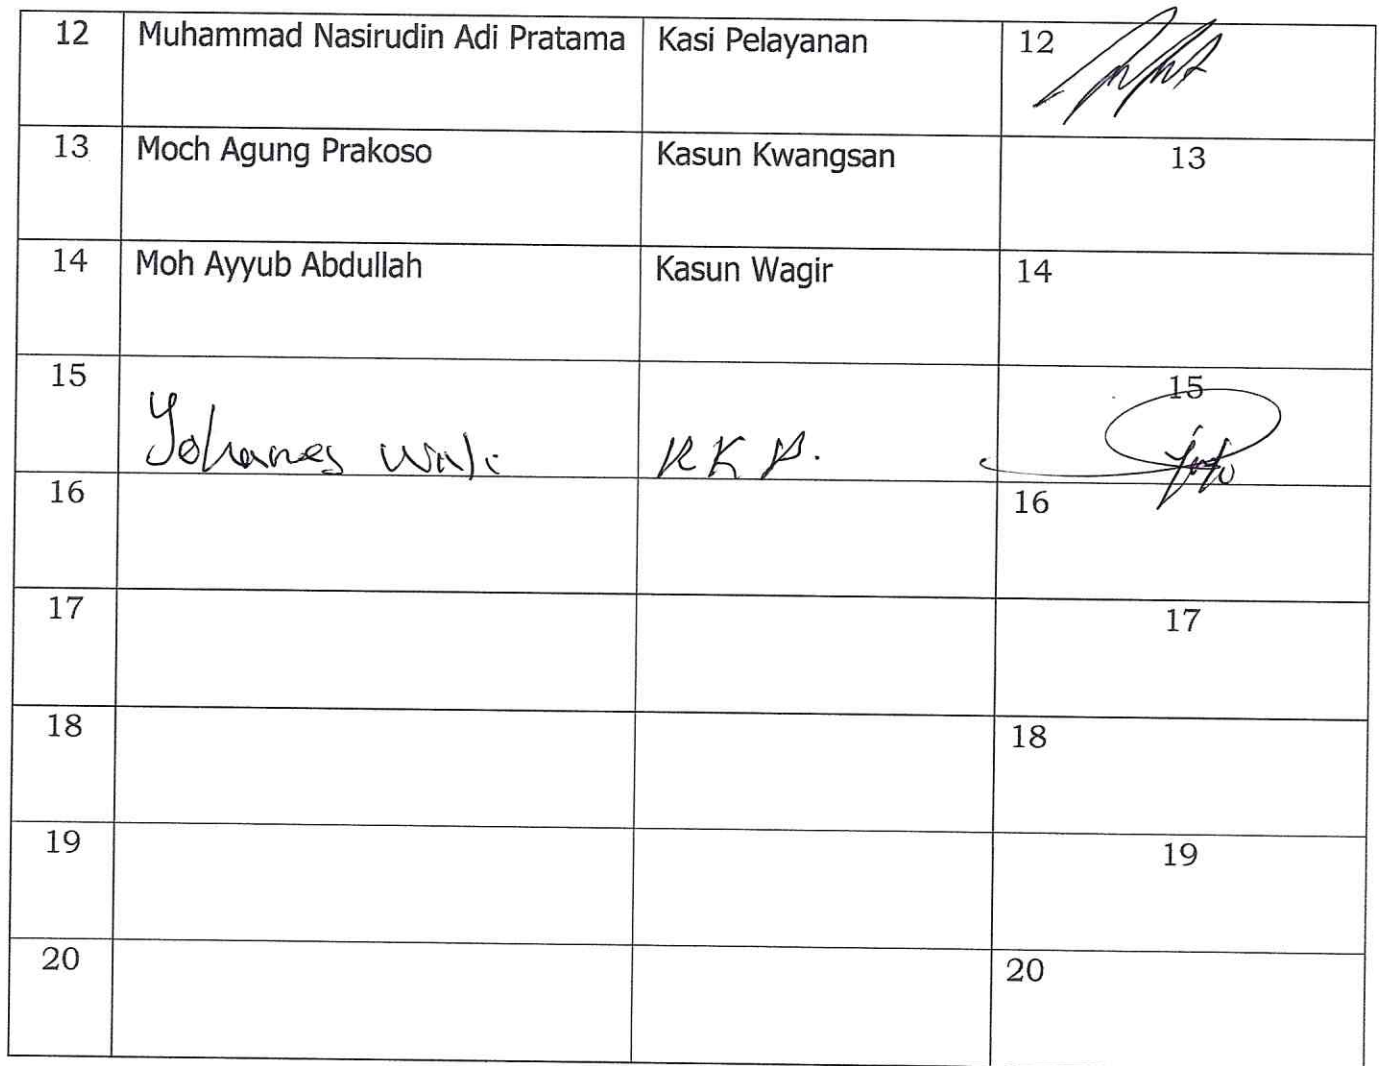 12 Muhammad Nasirudin Adi Pratama Kasi Pelayanan 12
13 Moch Agung Prakoso Kasun Kwangsan 13
14 Moh Ayyub Abdullah Kasun Wagir 14
15 15
Yohanes Wali RKP.
16 16
17 17
18 18
19 19
20 20